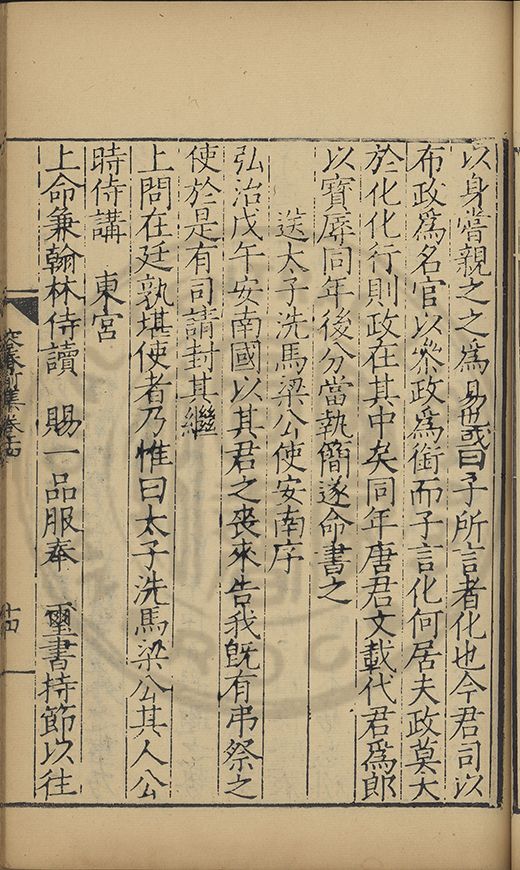 以身嘗親之之為易也或曰子所言者化也今君司以
布政爲名官以叅政爲銜而子言化何居夫政莫大
於化化行則政在其中矣同年唐君文載代君爲郎
以寳辱同年後分當執簡遂命書之
送太子洗馬梁公使安南序
弘治戊午安南國以其君之喪來告我旣有弔祭之
使於是有司請封其繼
上問在廷孰堪使者乃惟曰太子洗馬梁公其人公
時侍講 東宮
上命兼翰林侍讀 賜一品服奉 璽書持節以徃
前集卷十四
十四